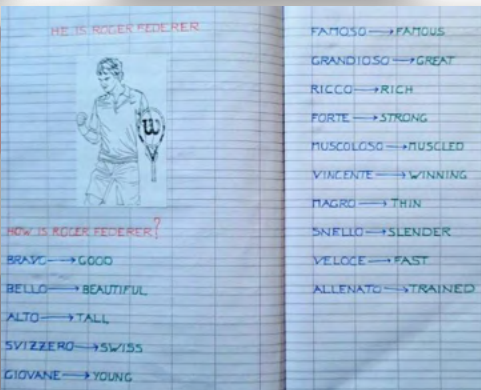 HE IS ROGER FEDERER
W
HOW IS ROGER FEDERER?
BRAVO → GOOD
BELLO → BEAUTIFUL
ALTO → TALL
SVIZZERO → SWISS
GIOVANE → YOUNG
FAMOSO → FAMOUS
GRANDIOSO → GREAT
RICCO → RICH
FORTE → STRONG
MUSCOLOSO → MUSCLED
VINCENTE → WINNING
MAGRO → THIN
SNELLO → SLENDER
VELOCE → FAST
ALLENATO → TRAINED